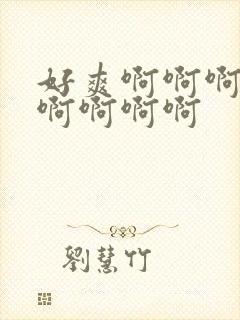 好爽啊啊啊
啊啊啊啊
劉慧竹